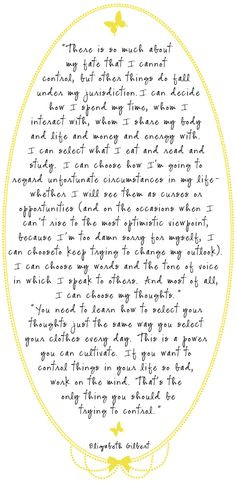 "There is so much about
my fate that I cannot
control, but other things do fall
under my jurisdiction. I can decide
how I spend my time, whom I
interact with, whom I share my body
and life and money and energy with.
I can select what I eat and read and
study. I can choose how I'm going to
regard unfortunate circumstances in my life-
whether I will see them as curses or
opportunities (and on the occasions when I
can't rise to the most optimistic viewpoint,
because I'm too damn sorry for myself, I
can chooseto keep trying to change my outlook).
I can choose my words and the tone of voice
in which I speak to others. And most of all,
I can choose my thoughts."
"You need to learn how to select your
thoughts just the same way you select
your clothes every day. This is a power
you can cultivate. If you want to
control things in your life so bad,
work on the mind. That's the
only thing you should be
trying to control."
Elizabeth Gilbert